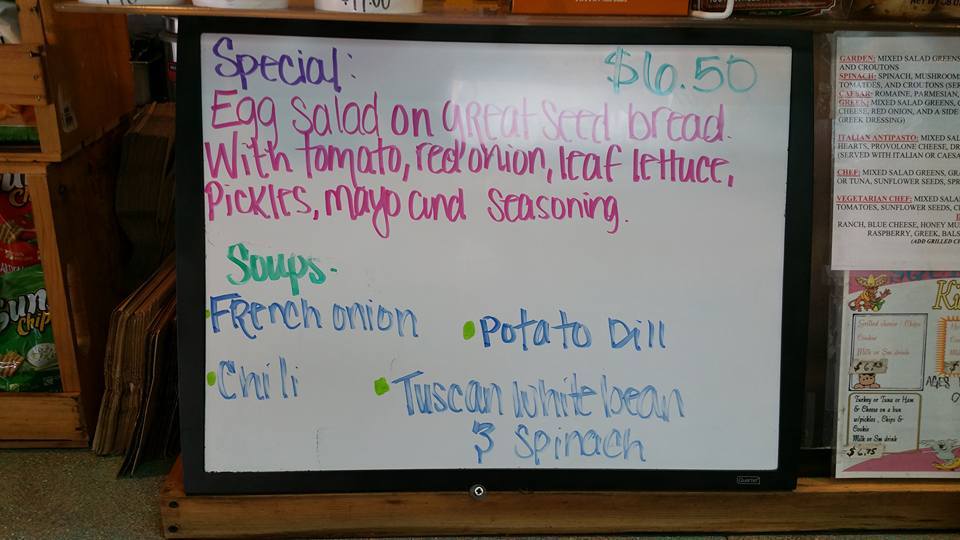 Special: $6.50
Egg Salad on Great Seed bread.
With tomato, red onion, leaf lettuce,
Pickles, mayo and seasoning.
Soups-
French onion
Potato Dill
Chili
Tuscan white bean
& Spinach
Quartet
Sun
Chip
GARDEN: MIXED SALAD GREENS
AND CROUTONS
SPINACH: SPINACH, MUSHROOM
TOMATOES, AND CROUTONS (SER
CAESAR: ROMAINE, PARMESAN,
GREEK: MIXED SALAD GREENS,
CHEESE, RED ONION, AND A SIDE
GREEK DRESSING)
ITALIAN ANTIPASTO: MIXED SAL
HEARTS, PROVOLONE CHEESE, DR
(SERVED WITH ITALIAN OR CAESA
CHEF: MIXED SALAD GREENS, GRA
OR TUNA, SUNFLOWER SEEDS, SPR
VEGETARIAN CHEF: MIXED SALA
TOMATOES, SUNFLOWER SEEDS, C
RANCH, BLUE CHEESE, HONEY MU
RASPBERRY, GREEK, BALS
(ADD GRILLED C
Ki
Grilled cheese / Chips
Cookie
Milk or Sm drink
AGES
Turkey or Tuna or Ham
& Cheese on a bun
w/pickles, Chips &
Cookie
Milk or Sm drink
$ 6.75